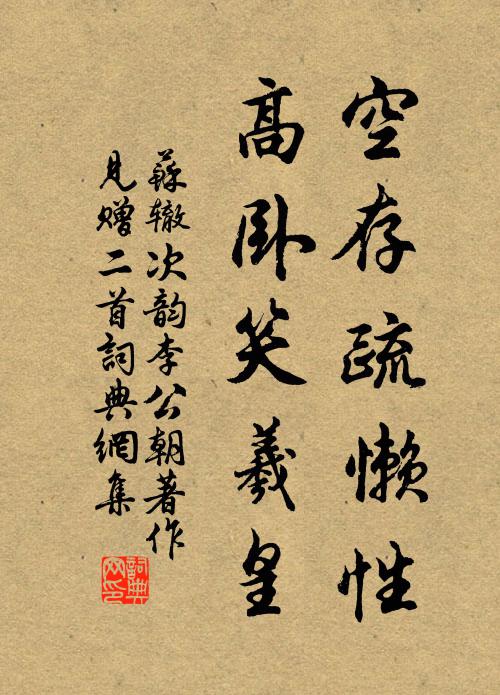 空存疏懒性
高卧笑羲皇
蘇辙次韵李公朝著作
見赠二首詞典網集
詞典网印